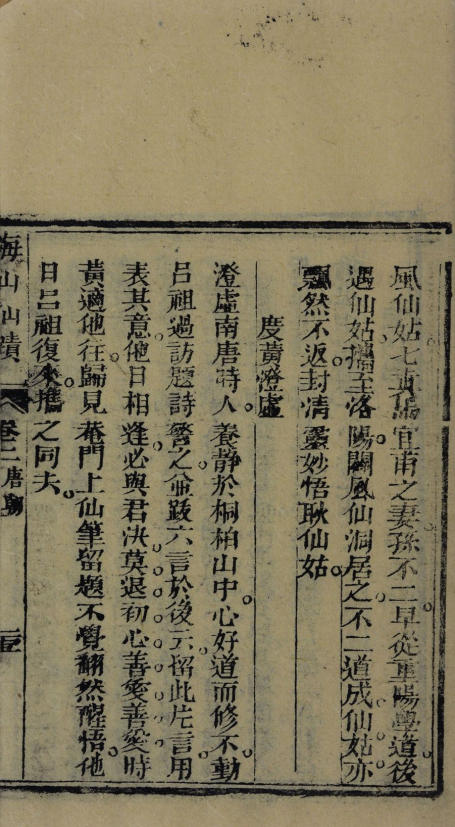 風仙姑七真馮宜甫之妻孫不二早從重陽學道後
遇仙姑攜至洛陽關風仙洞居之不二道成仙姑亦
飄然不返封清靈妙悟耿仙姑
度黃澄虛
澄虛南唐時人養靜於桐柏山中心好道而修不動
呂祖過訪題詩警之並跋六言於後云留此片言用
表其意他日相逢必與君決莫退初心善愛善愛時
黃適他往歸見菴門上仙筆留題不覺翻然醒悟他
日呂祖復來攜之同去
海山仙蹟
卷二唐